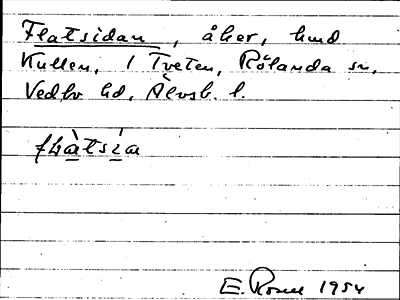 Flatsidan, åker, hmd
Kullen, 1 Tveten, Rölanda sn,
Vedbo hd, Älvsb. l.
flàtsía
E. Rosell 1954